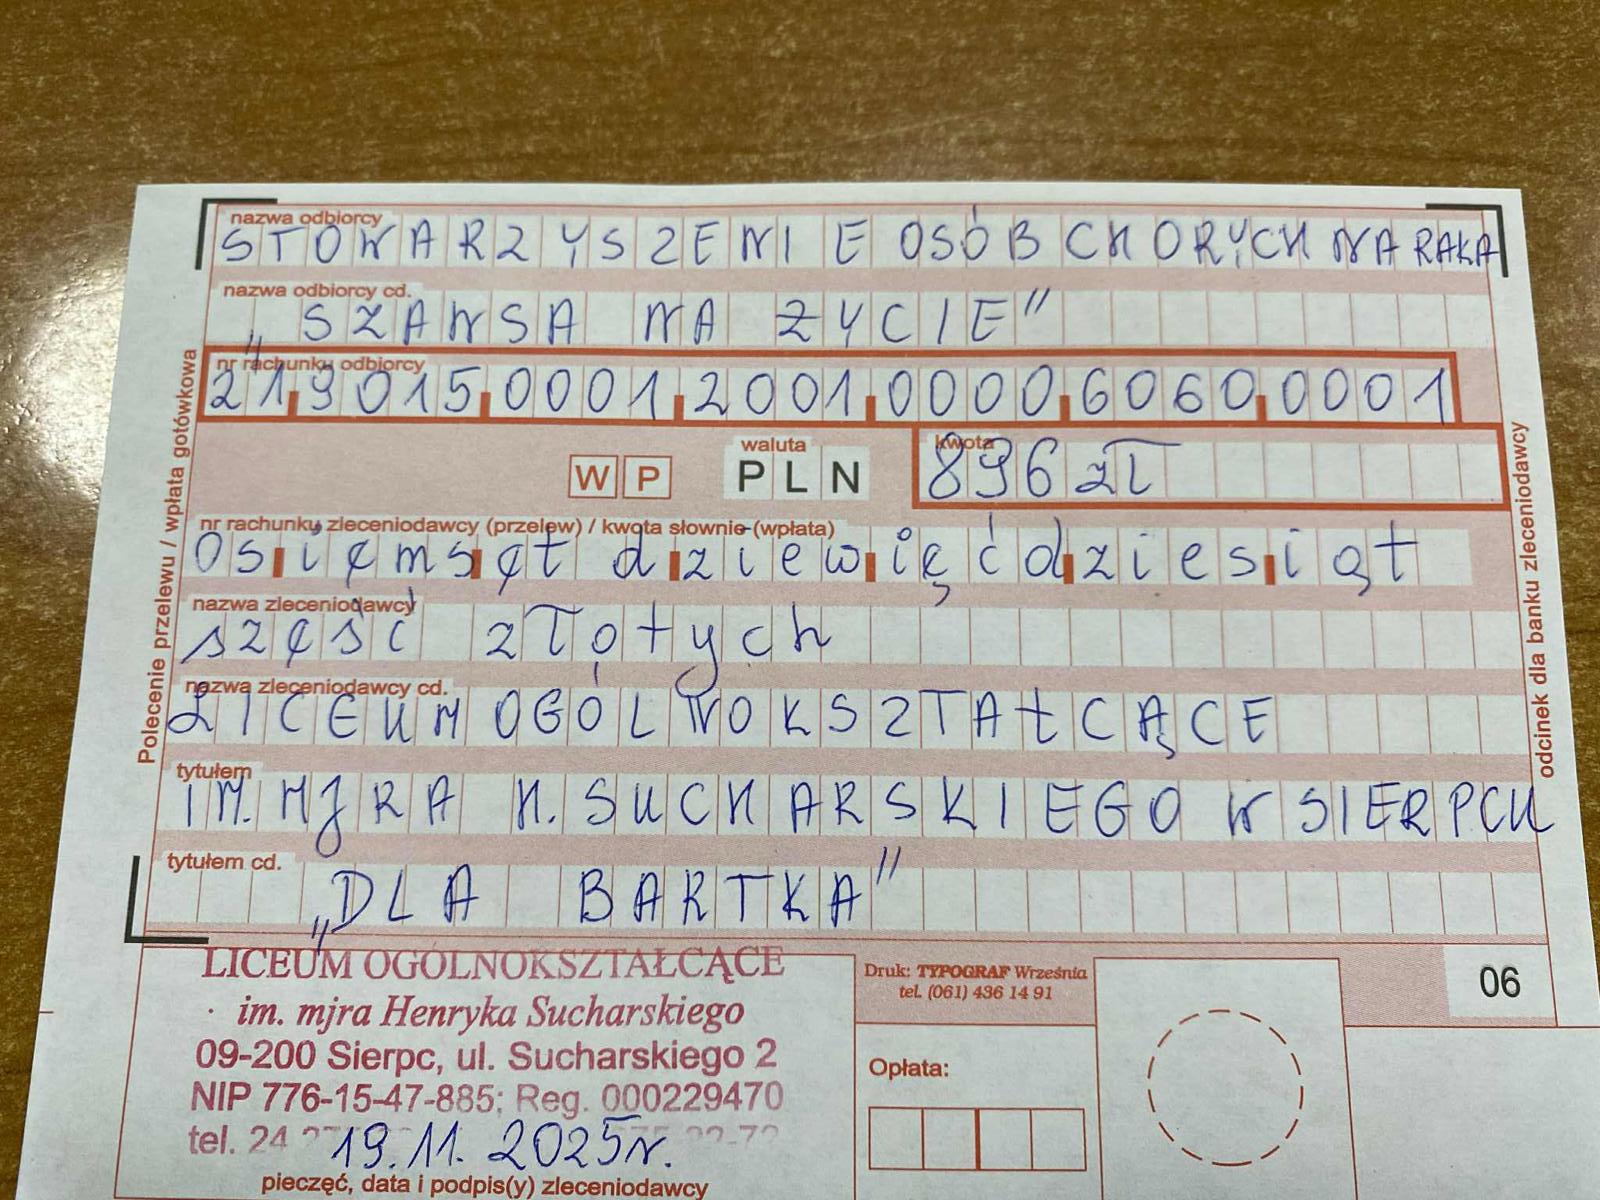 nazwa odbiorcy
STOWARZYSZENIE OSÓB CHORYCH NA RAKA
nazwa odbiorcy cd.
„SZANSA NA ŻYCIE”
nr rachunku odbiorcy
21 9015 0001 2001 0000 6060 0001
waluta
kwota
W P PLN 896 zł
nr rachunku zleceniodawcy (przelew) / kwota słownie (wpłata)
osiemset dziewięćdziesiąt
nazwa zleceniodawcy
sześć złotych
nazwa zleceniodawcy cd.
LICEUM OGÓLNOKSZTAŁCĄCE
tytułem
IM. MJRA H. SUCHARSKIEGO W SIERPCU
tytułem cd.
„DLA BARTKA”
Polecenie przelewu / wpłata gotówkowa
odcinek dla banku zleceniodawcy
LICEUM OGÓLNOKSZTAŁCĄCE
im. mjra Henryka Sucharskiego
09-200 Sierpc, ul. Sucharskiego 2
NIP 776-15-47-885; Reg. 000229470
tel. 24
19.11.2025r.
pieczęć, data i podpis(y) zleceniodawcy
Druk: TYPOGRAF Września
tel. (061) 436 14 91
Opłata:
06